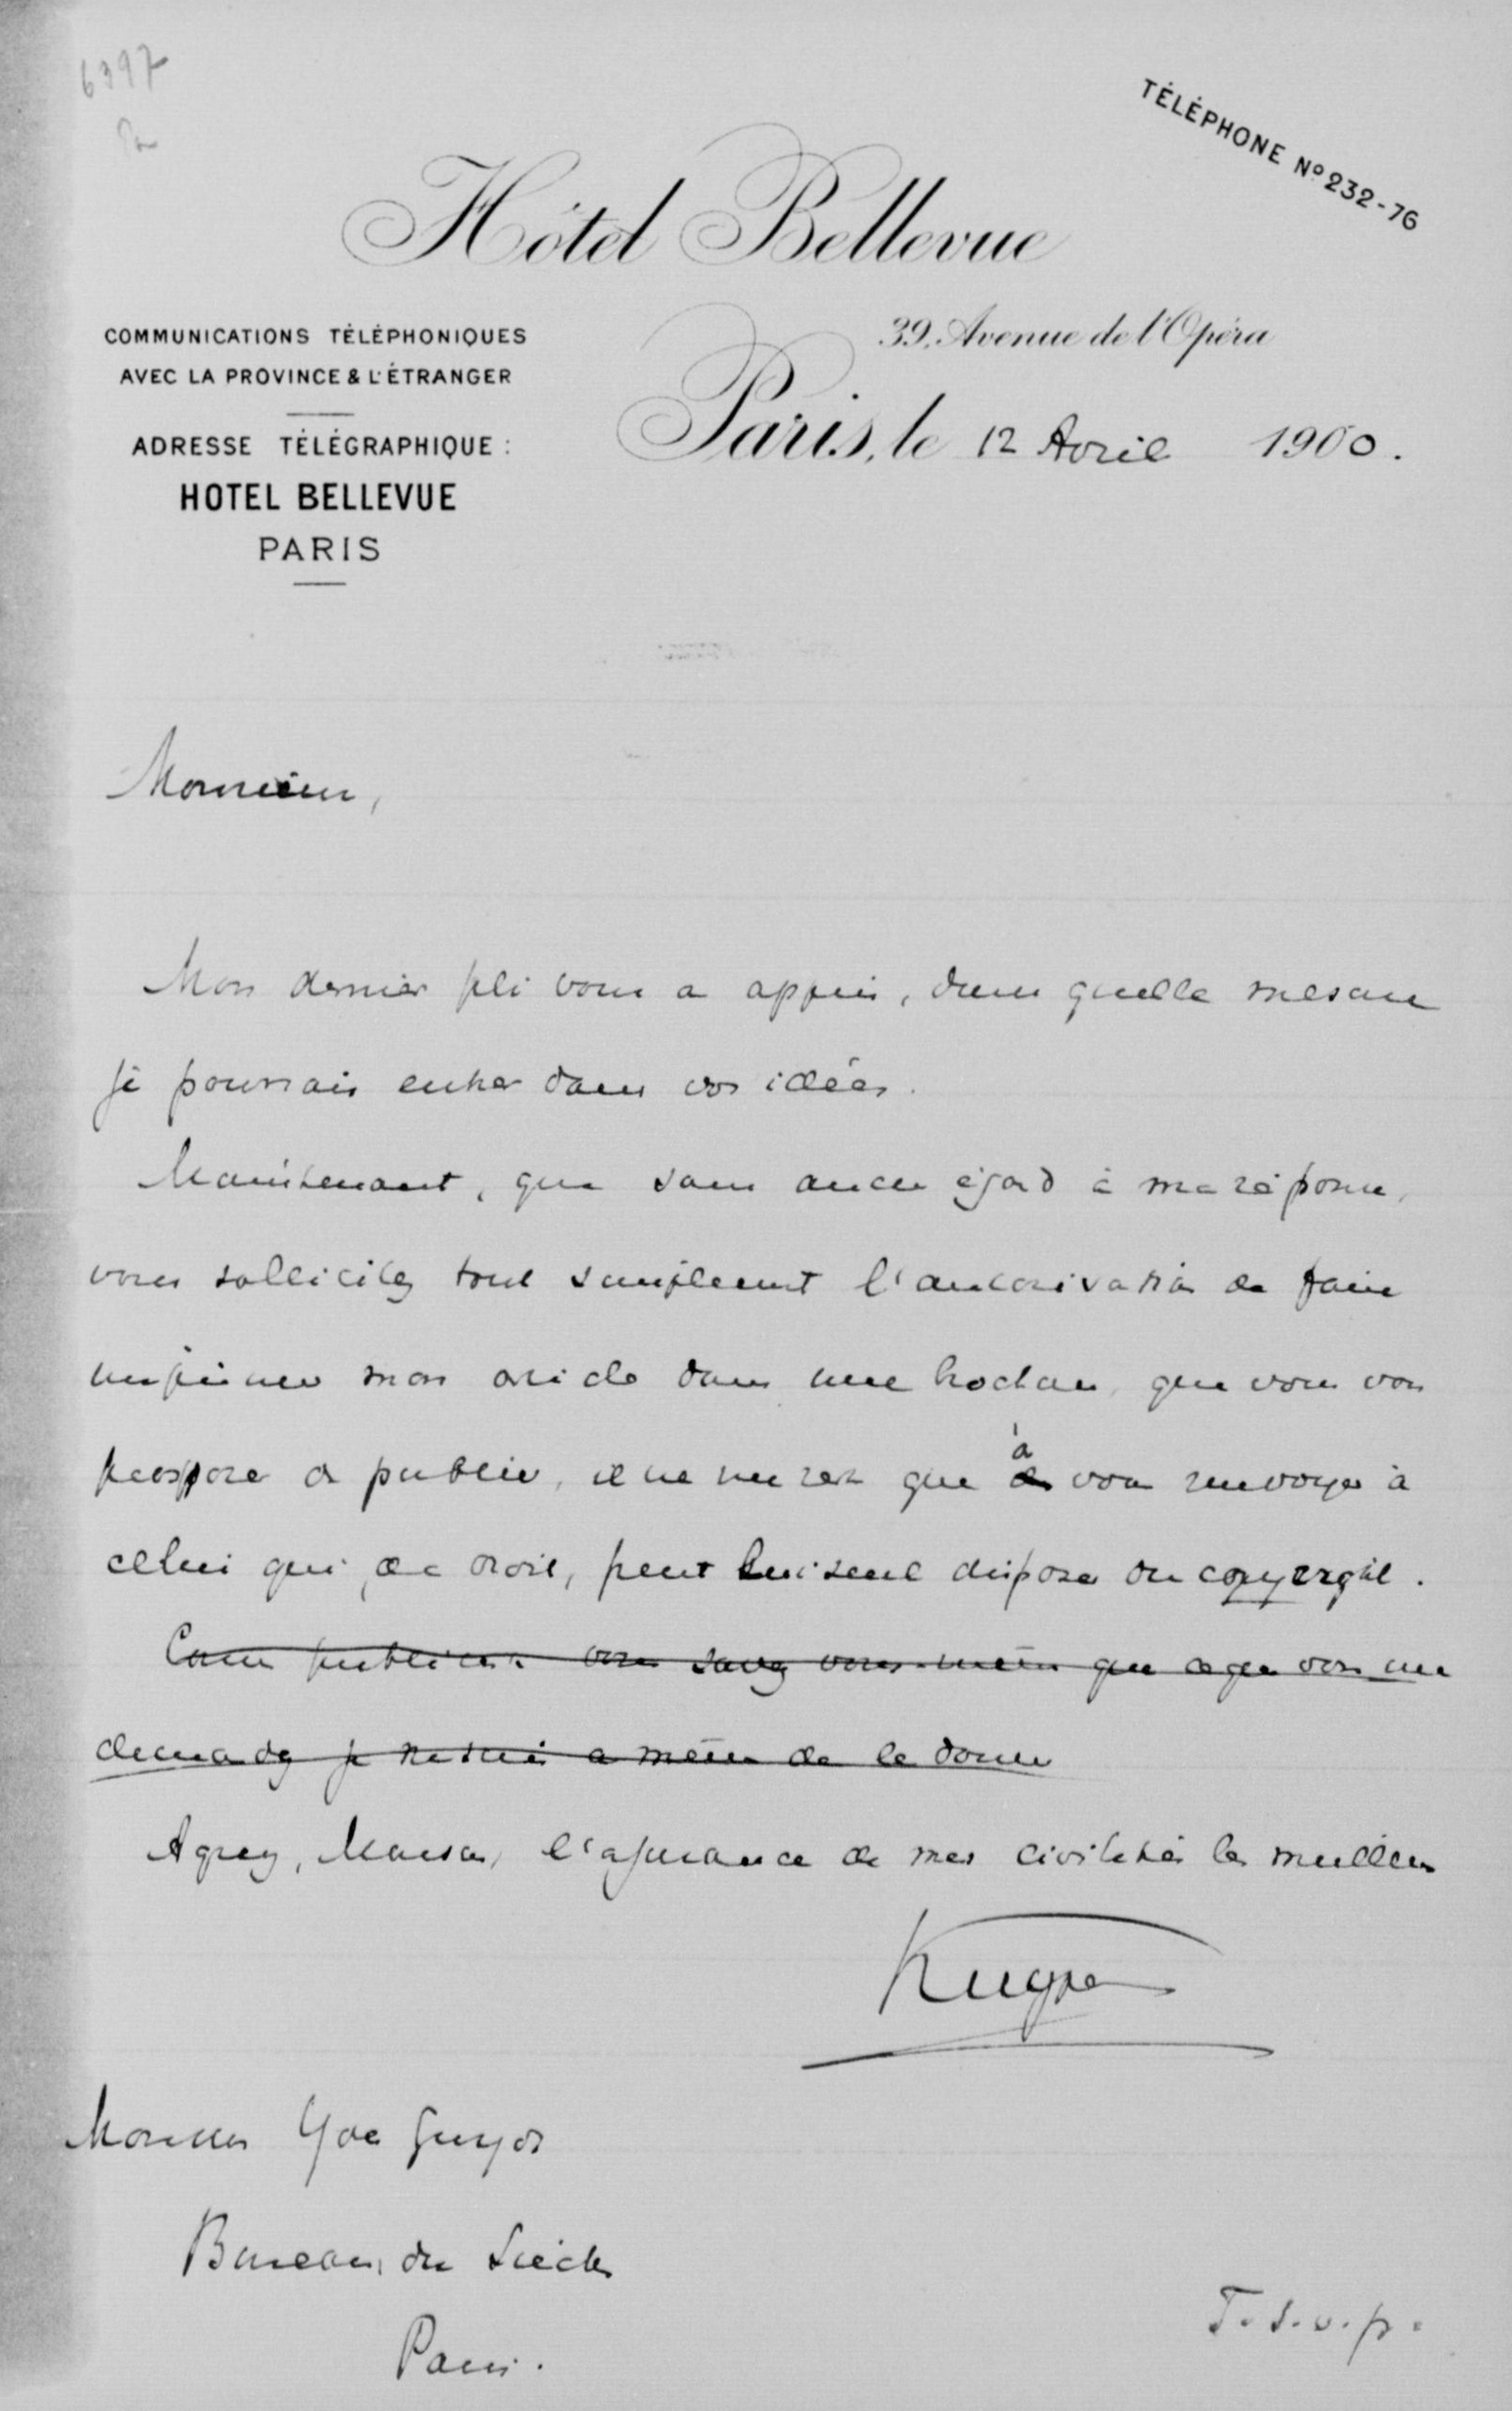 6397
TÉLÉPHONE Nº 232-76
Hôtel Bellevue
COMMUNICATIONS TÉLÉPHONIQUES
AVEC LA PROVINCE & L'ÉTRANGER
39, Avenue de l'Opéra
ADRESSE TÉLÉGRAPHIQUE :
HOTEL BELLEVUE
PARIS
Paris, le 12 Avril 1900.
Monsieur,
Mon dernier pli vous a appris, dans quelle mesure
je pourrais entrer dans vos idées.
Maintenant, que sans aucun égard à ma réponse,
vous sollicitez tout simplement l'autorisation de faire
imprimer mon article dans une brochure, que vous vous
proposez de publier, il ne me reste que à de vous renvoyer à
celui qui, de droit, peut lui seul disposer du copyright.
Comme publiciste vous savez vous-même que ce que vous me
demandez je ne suis à même de le donner
Agréez, Monsieur, l'assurance de mes civilités les meilleures
Monsieur Yves Guyot
Bureau du Siècle
Paris.
T.S.v.p.